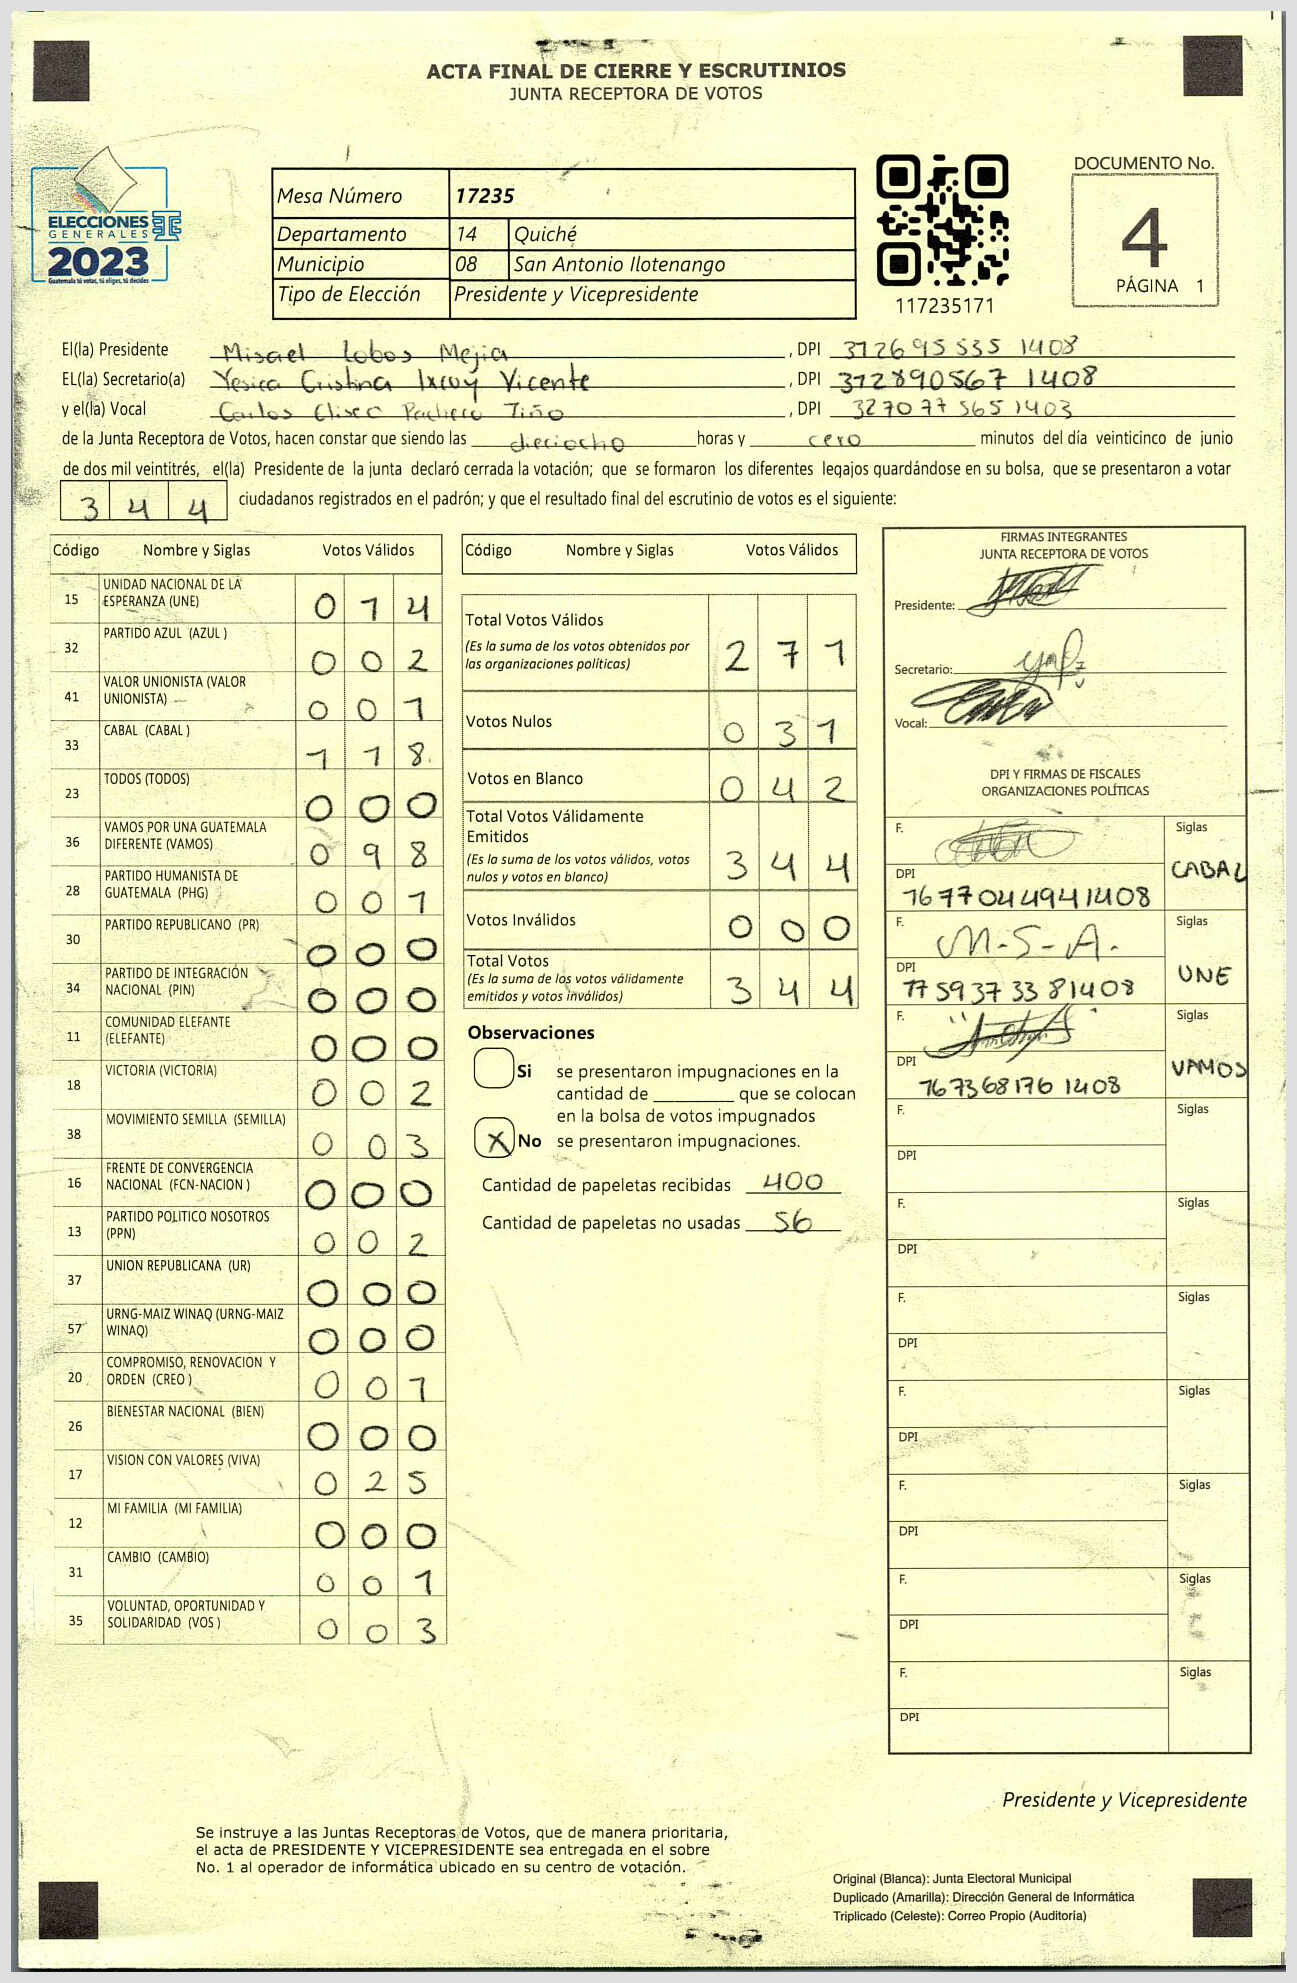 ACTA FINAL DE CIERRE Y ESCRUTINIOS
JUNTA RECEPTORA DE VOTOS
ELECCIONES
GENERALES
2023
Guatemala tú votas, tú eliges, tú decides
Mesa Número 17235
Departamento 14 Quiché
Municipio 08 San Antonio Ilotenango
Tipo de Elección Presidente y Vicepresidente
117235171
DOCUMENTO No.
4
PÁGINA 1
El(la) Presidente Misael Lobos Mejia , DPI 312695535 1408
EL(la) Secretario(a) Yesica Cristina Ixcuy Vicente , DPI 312890567 1408
y el(la) Vocal Carlos Eliseo Pacheco Tiño , DPI 327077565 1403
de la Junta Receptora de Votos, hacen constar que siendo las dieciocho horas y cero minutos del día veinticinco de junio
de dos mil veintitrés, el(la) Presidente de la junta declaró cerrada la votación; que se formaron los diferentes legajos guardándose en su bolsa, que se presentaron a votar
344 ciudadanos registrados en el padrón; y que el resultado final del escrutinio de votos es el siguiente:
Código Nombre y Siglas Votos Válidos
15 UNIDAD NACIONAL DE LA ESPERANZA (UNE) 014
32 PARTIDO AZUL (AZUL ) 002
41 VALOR UNIONISTA (VALOR UNIONISTA) 001
33 CABAL (CABAL ) 118
23 TODOS (TODOS) 000
36 VAMOS POR UNA GUATEMALA DIFERENTE (VAMOS) 098
28 PARTIDO HUMANISTA DE GUATEMALA (PHG) 001
30 PARTIDO REPUBLICANO (PR) 000
34 PARTIDO DE INTEGRACIÓN NACIONAL (PIN) 000
11 COMUNIDAD ELEFANTE (ELEFANTE) 000
18 VICTORIA (VICTORIA) 002
38 MOVIMIENTO SEMILLA (SEMILLA) 003
16 FRENTE DE CONVERGENCIA NACIONAL (FCN-NACION ) 000
13 PARTIDO POLITICO NOSOTROS (PPN) 002
37 UNION REPUBLICANA (UR) 000
57 URNG-MAIZ WINAQ (URNG-MAIZ WINAQ) 000
20 COMPROMISO, RENOVACION Y ORDEN (CREO ) 001
26 BIENESTAR NACIONAL (BIEN) 000
17 VISION CON VALORES (VIVA) 025
12 MI FAMILIA (MI FAMILIA) 000
31 CAMBIO (CAMBIO) 001
35 VOLUNTAD, OPORTUNIDAD Y SOLIDARIDAD (VOS ) 003
Código Nombre y Siglas Votos Válidos
Total Votos Válidos 271
(Es la suma de los votos obtenidos por
las organizaciones políticas)
Votos Nulos 031
Votos en Blanco 042
Total Votos Válidamente
Emitidos 344
(Es la suma de los votos válidos, votos
nulos y votos en blanco)
Votos Inválidos 000
Total Votos 344
(Es la suma de los votos válidamente
emitidos y votos inválidos)
Observaciones
Si se presentaron impugnaciones en la
cantidad de ________ que se colocan
en la bolsa de votos impugnados
X No se presentaron impugnaciones.
Cantidad de papeletas recibidas 400
Cantidad de papeletas no usadas 56
FIRMAS INTEGRANTES
JUNTA RECEPTORA DE VOTOS
Presidente:
Secretario:
Vocal:
DPI Y FIRMAS DE FISCALES
ORGANIZACIONES POLÍTICAS
F. Siglas
CABAL
DPI
1677044941408
F. M-S-A. Siglas
UNE
DPI
1759373381408
F. Siglas
VAMOS
DPI
167368176 1408
F. Siglas
DPI
F. Siglas
DPI
F. Siglas
DPI
F. Siglas
DPI
F. Siglas
DPI
F. Siglas
DPI
F. Siglas
DPI
Presidente y Vicepresidente
Se instruye a las Juntas Receptoras de Votos, que de manera prioritaria,
el acta de PRESIDENTE Y VICEPRESIDENTE sea entregada en el sobre
No. 1 al operador de informática ubicado en su centro de votación.
Original (Blanca): Junta Electoral Municipal
Duplicado (Amarilla): Dirección General de Informática
Triplicado (Celeste): Correo Propio (Auditoría)